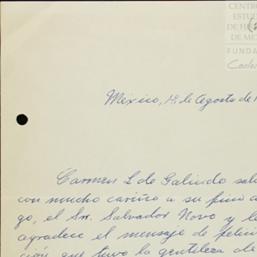 CENTRO
ESTU
DE H
DE ME
FUNDA
México, 14 de Agosto de 1
Carmen L. de Galindo salu
con mucho cariño a su fino a
go, el Sr. Salvador Novo y le
agradece el mensaje de felici
ción que tuvo la gentileza de